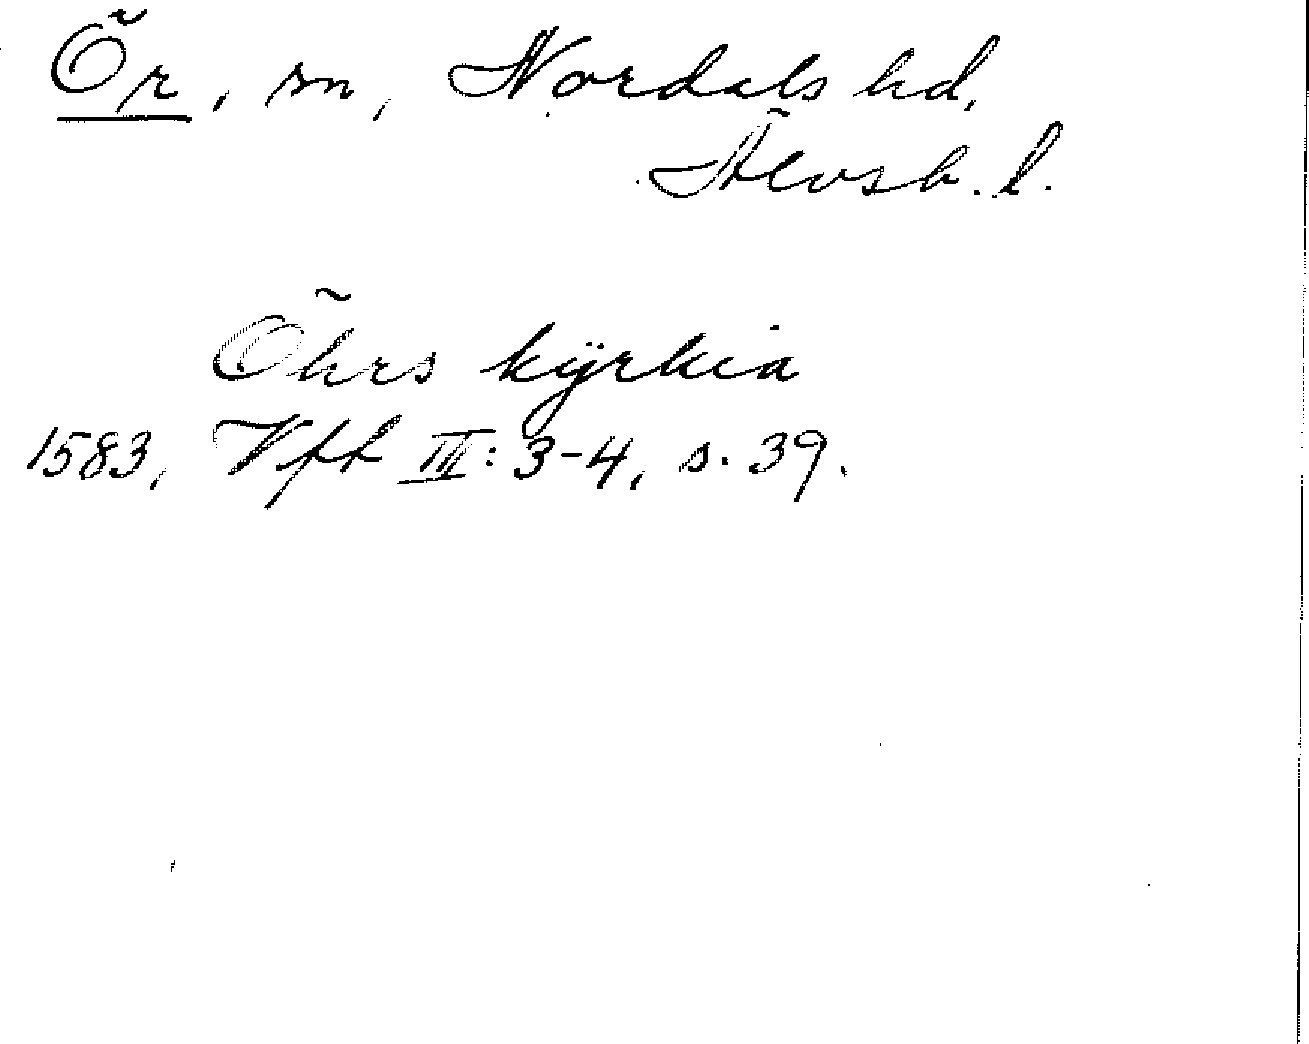 Ör, sn, Nordals hd,
Älvsb. l.
Öhrs kÿrkia
1583, Vfft III: 3-4, s. 39.